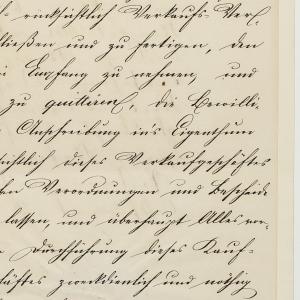 rücksichtlich Verkaufs- Ver-
ließen und zu fertigen, den
Empfang zu nehmen, und
zu quittiren, die Bewilli-
Anschreibung in's Eigenthum
sichtlich dieses Verkaufgeschäftes
Verordnungen und Bescheide
lassen, und überhaupt Alles vor-
Durchführung dieses Kauf-
häftes zweckdienlich und nöthig